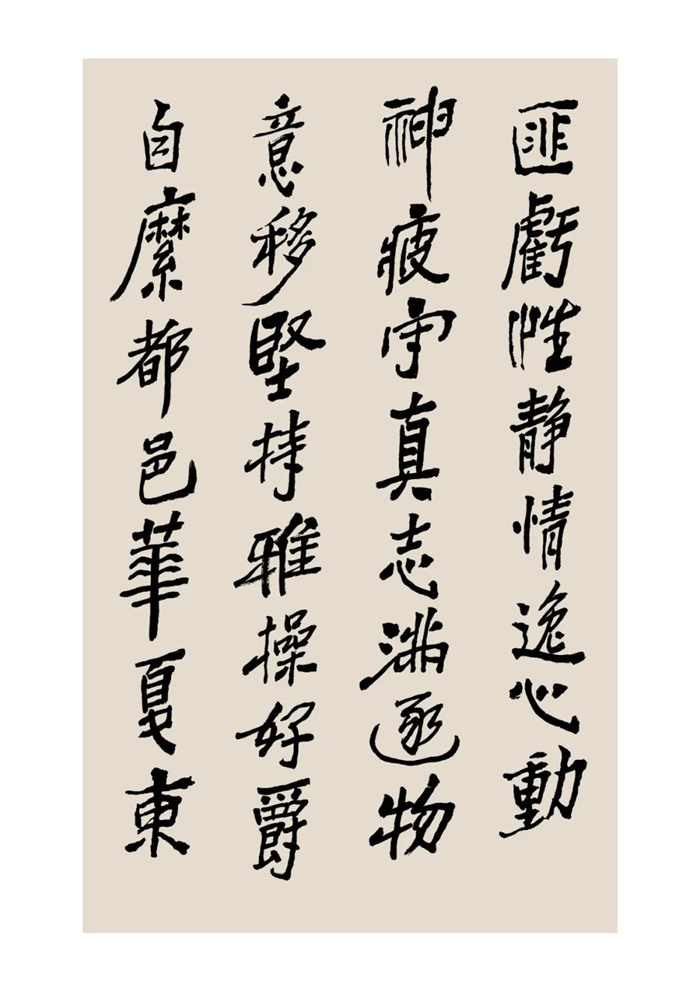 匪虧性静情逸心動
神疲守真志滿逐物
意移堅持雅操好爵
自縻都邑華夏東